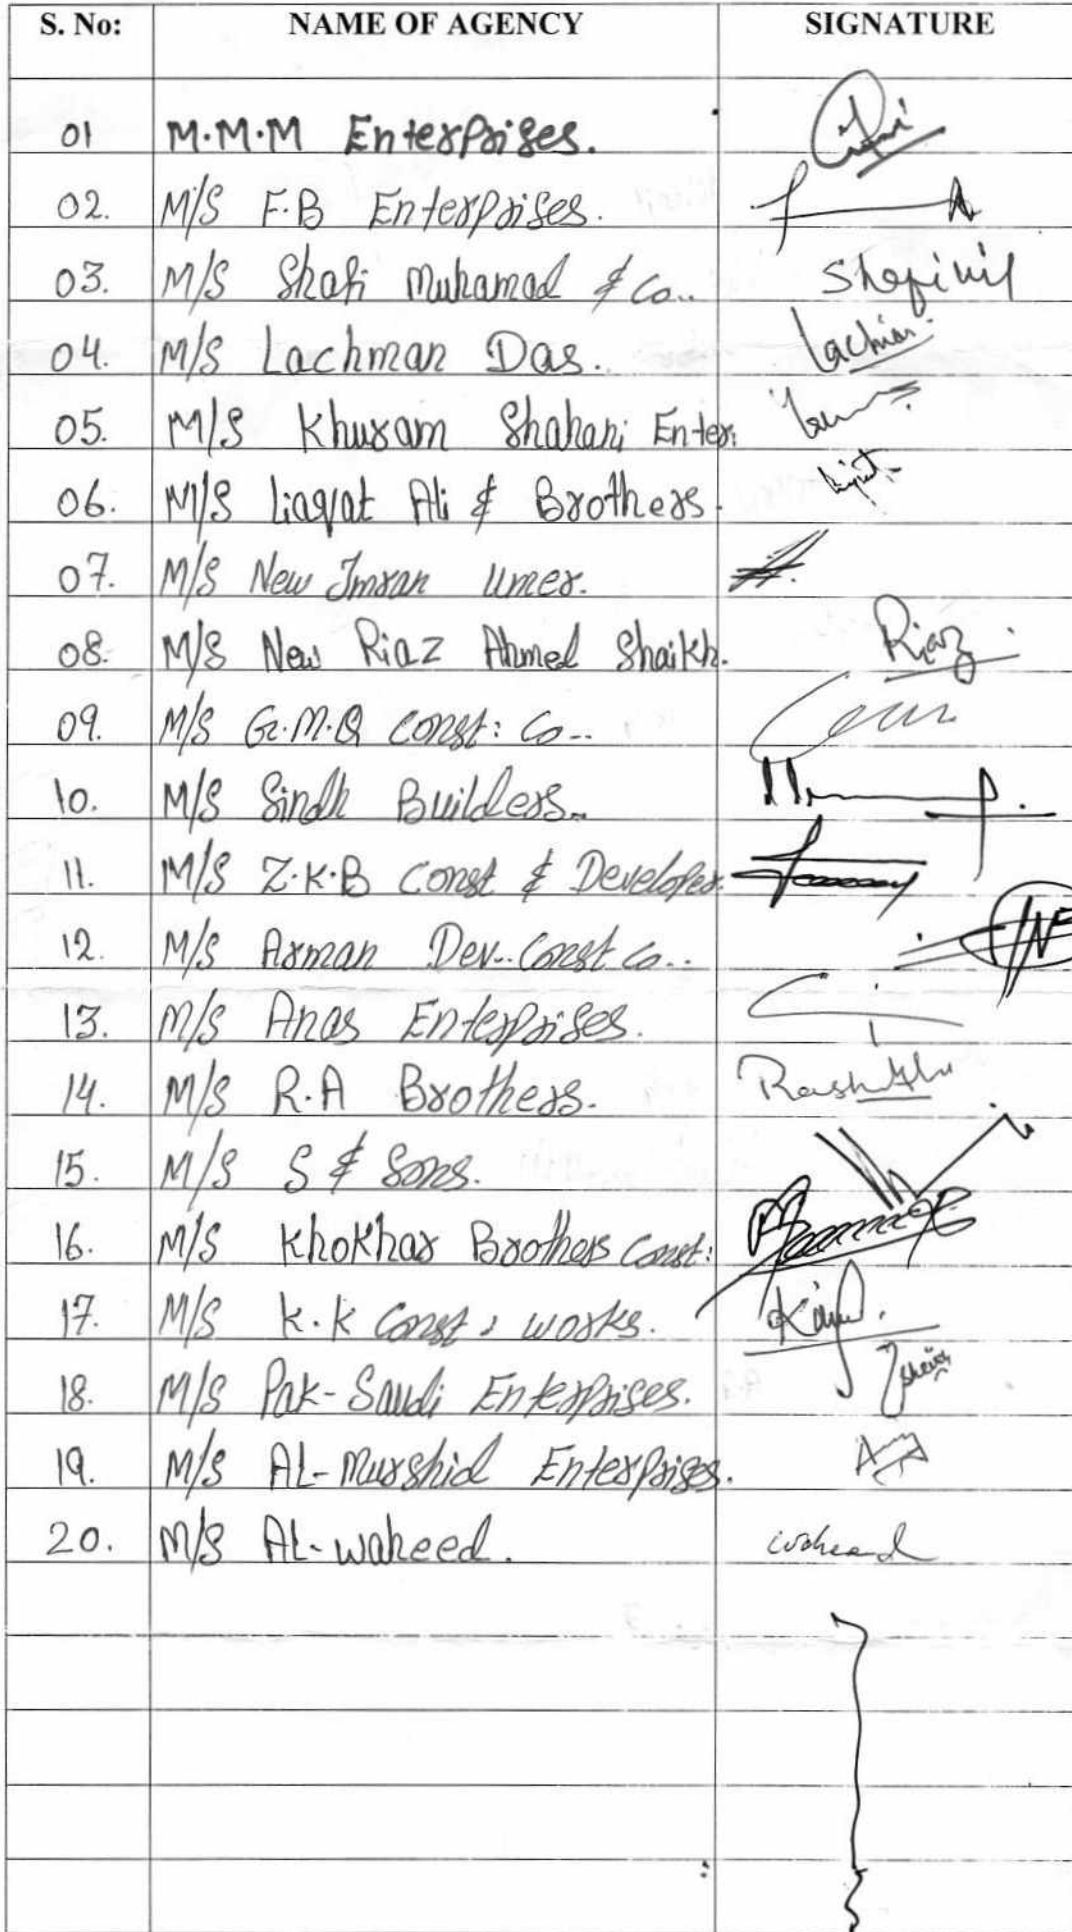 S. No: NAME OF AGENCY SIGNATURE
01 M.M.M Enterprises.
02. M/S F.B Enterprises.
03. M/S Shafi Muhamad & Co..
04. M/S Lachman Das. Lachman
05. M/S Khuram Shahani Enter:
06. M/S Liaqat Ali & Brothers.
07. M/S New Imran Umer.
08. M/S New Riaz Ahmed Shaikh. Riaz
09. M/S G.M.Q Const: Co..
10. M/S Sindh Builders..
11. M/S Z.K.B Const & Developer.
12. M/S Arman Dev..Const co..
13. M/S Anas Enterprises.
14. M/S R.A Brothers.
15. M/S S & Sons.
16. M/S Khokhar Brothers Const:
17. M/S K.K Const: works.
18. M/S Pak-Saudi Enterprises.
19. M/S AL-Murshid Enterprises.
20. M/S AL-waheed. waheed